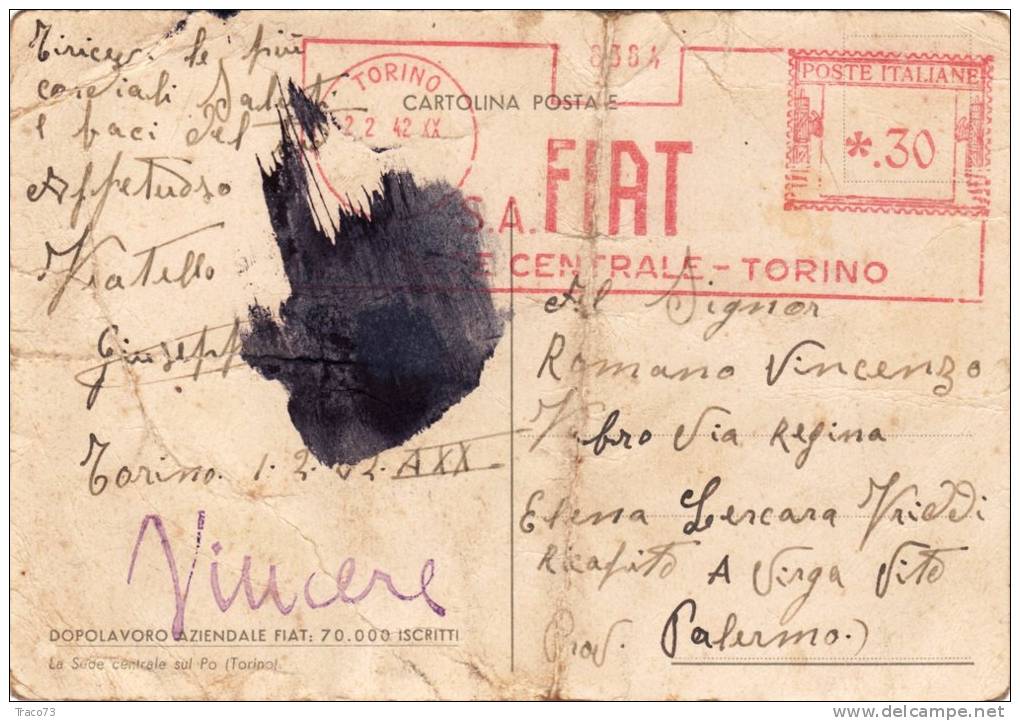 le più
cordiali Saluti
e baci del
Affetuoso
Fratello
Giusepp
Torino 1.2.42. AXX
Vincere
DOPOLAVORO AZIENDALE FIAT: 70.000 ISCRITTI
La Sede centrale sul Po (Torino).
TORINO
2.2 42 XX
8384
CARTOLINA POSTALE
POSTE ITALIANE
*.30
S.A. FIAT
CENTRALE - TORINO
Al Signor
Romano Vincenzo
Via Regina
Elena Lercara Friddi
Ricapito A Virga Vito
Prov. Palermo.)
Traco73
www.delcampe.net